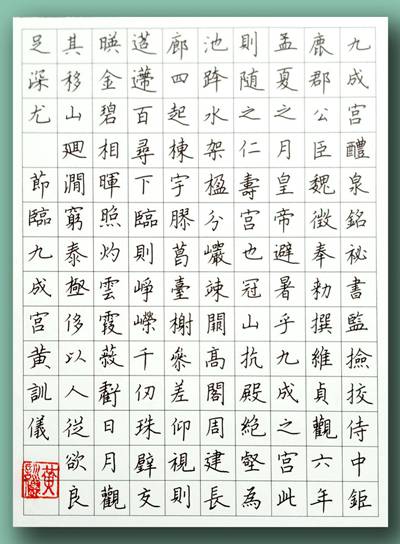 九成宮醴泉銘秘書監撿挍侍中鉅
鹿郡公臣魏徵奉勑撰維貞觀六年
孟夏之月皇帝避暑乎九成之宮此
則随之仁壽宮也冠山抗殿絕壑為
池跨水架楹分巖竦闕高閣周建長
廊四起棟宇膠葛臺榭參差仰視則
迢遰百尋下臨則崢嶸千仞珠壁交
暎金碧相暉照灼雲霞蔽虧日月觀
其移山廻澗窮泰極侈以人從欲良
足深尤 節臨九成宮黄訓儀